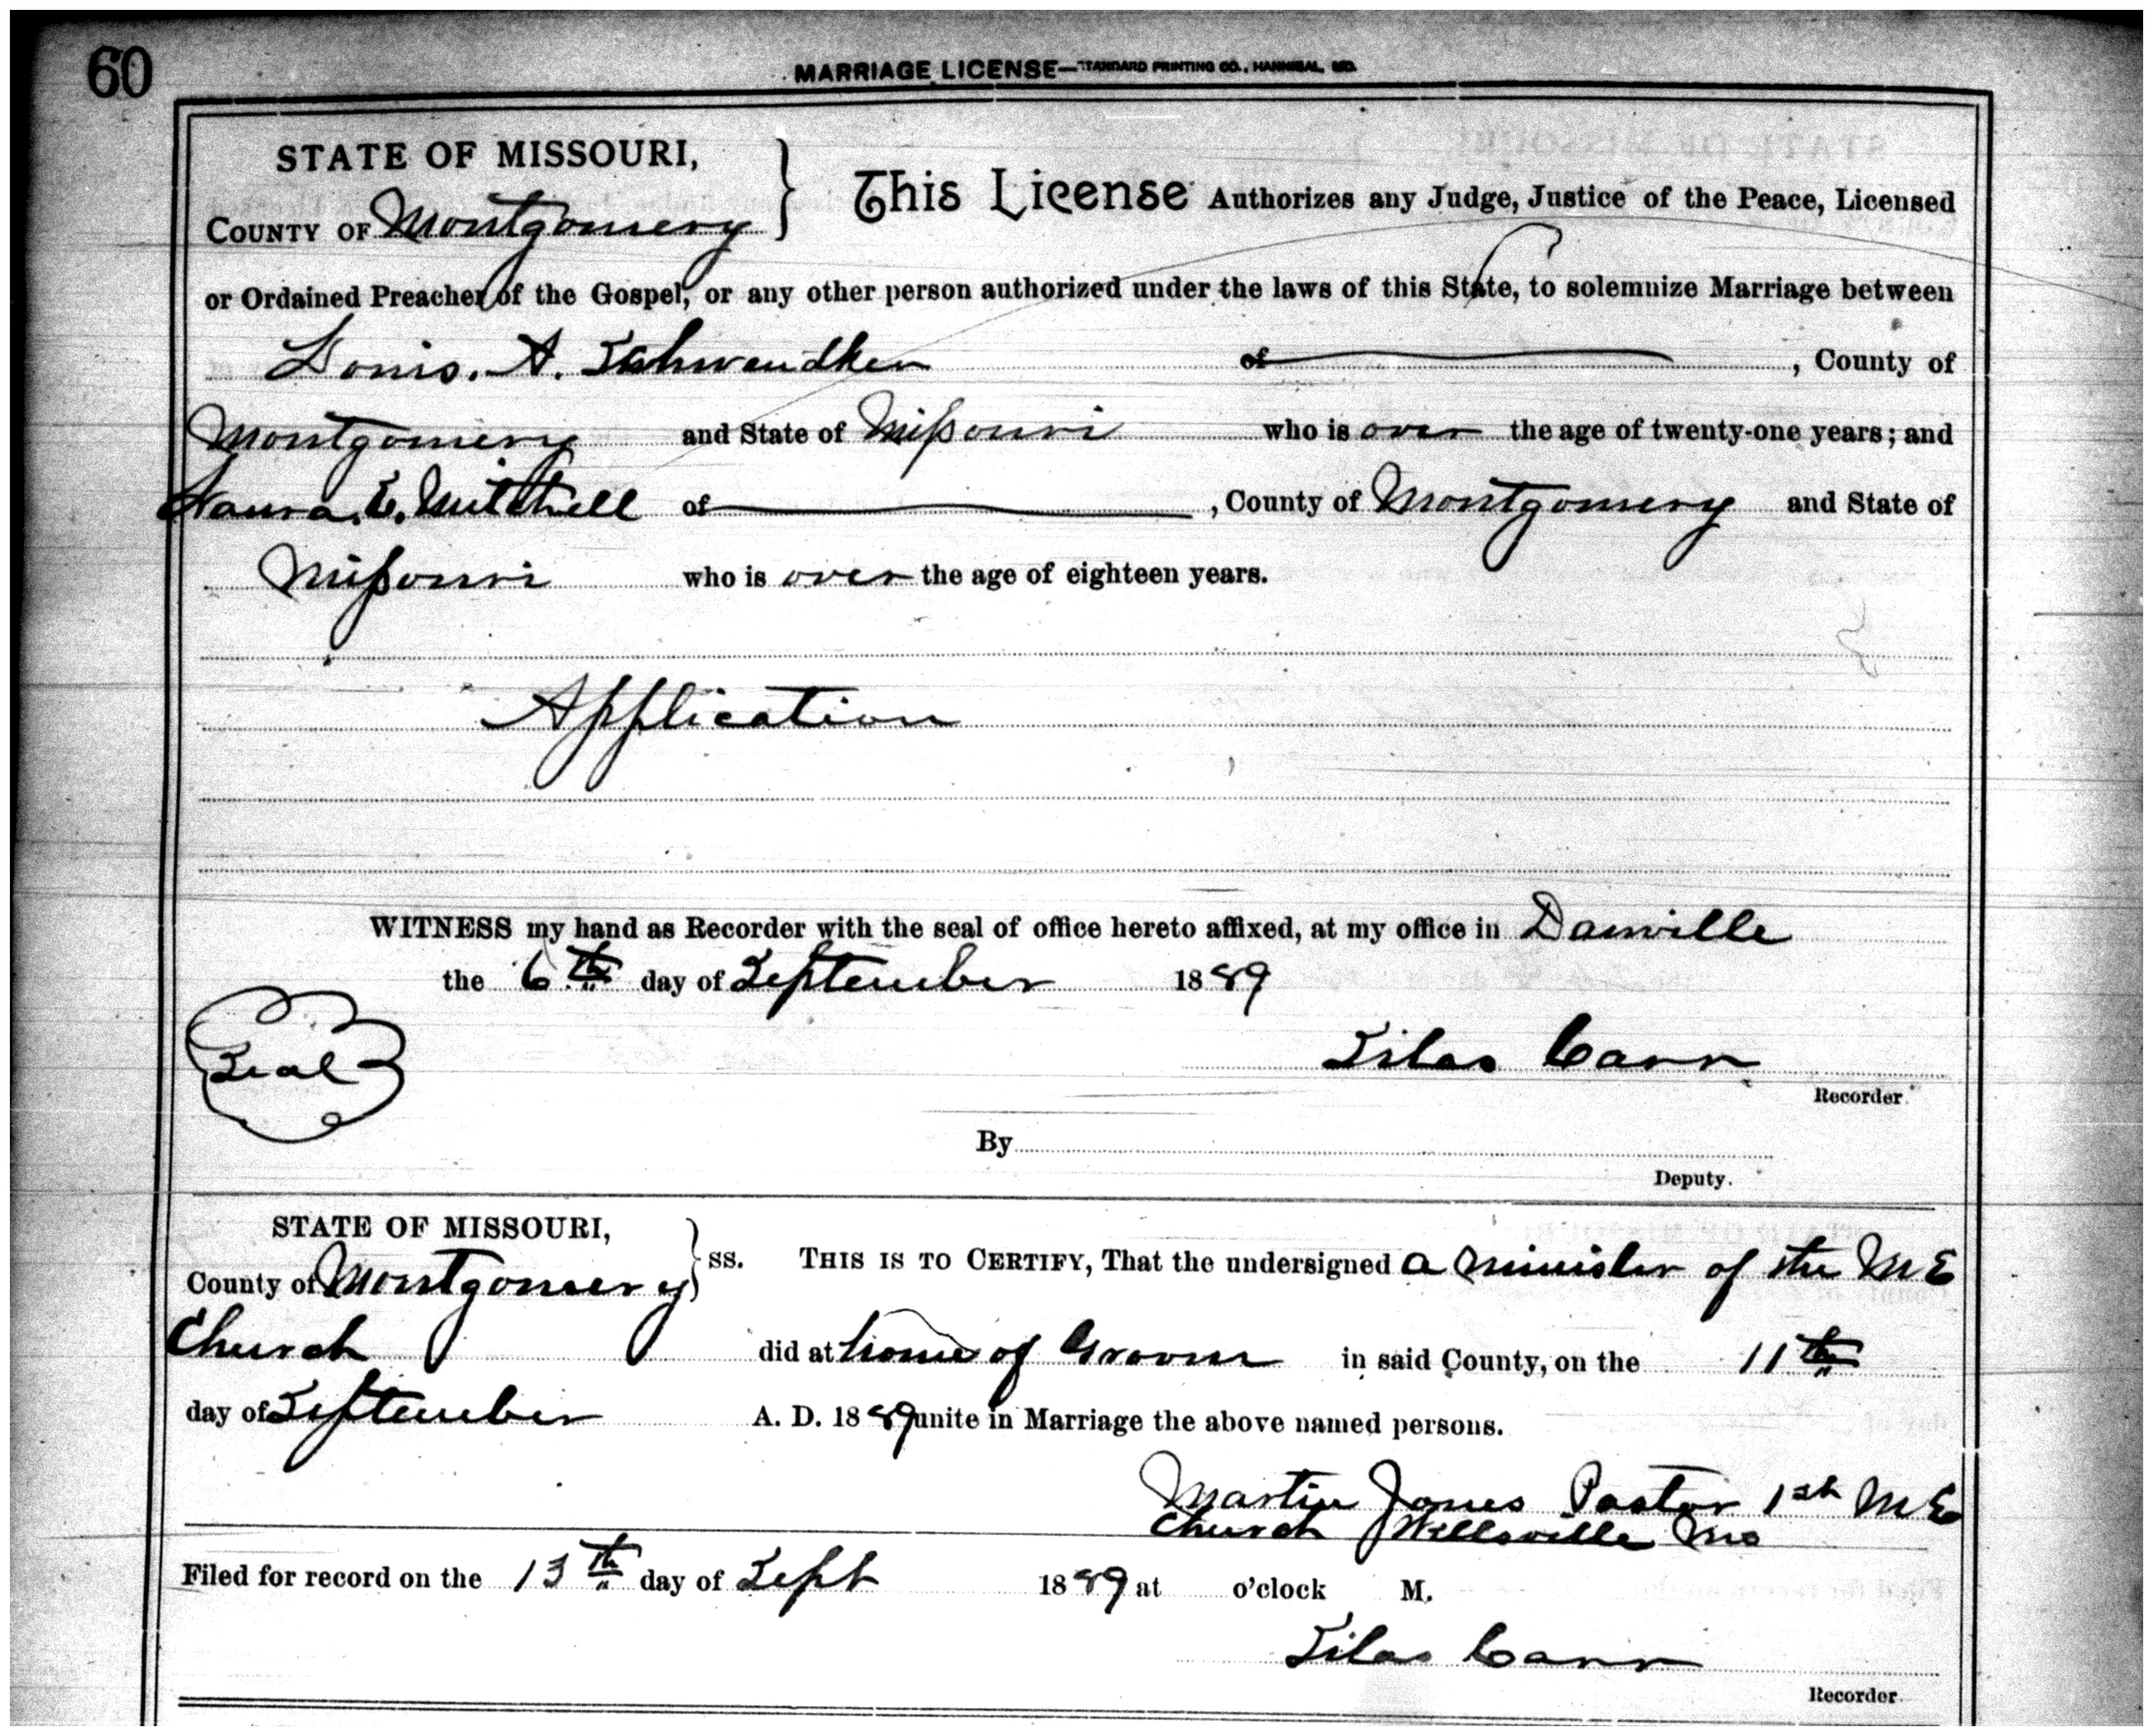 60
MARRIAGE LICENSE—STANDARD PRINTING CO., HANNIBAL, MO.
STATE OF MISSOURI,
COUNTY OF Montgomery
This License Authorizes any Judge, Justice of the Peace, Licensed
or Ordained Preacher of the Gospel, or any other person authorized under the laws of this State, to solemnize Marriage between
Louis. A. Schwendker of , County of
Montgomery and State of Missouri who is over the age of twenty-one years; and
Laura. E. Mitchell of , County of Montgomery and State of
Missouri who is over the age of eighteen years.
Application
WITNESS my hand as Recorder with the seal of office hereto affixed, at my office in Danville
the 6th day of September 1889
Seal
Silas Carr
Recorder.
By
Deputy.
STATE OF MISSOURI,
County of Montgomery ss. THIS IS TO CERTIFY, That the undersigned a minister of the M E
Church did at home of Groom in said County, on the 11th
day of September A. D. 1889 unite in Marriage the above named persons.
Martin Jones Pastor 1st M E
Church Wellsville Mo
Filed for record on the 13th day of Sept 1889 at o'clock M.
Silas Carr
Recorder.